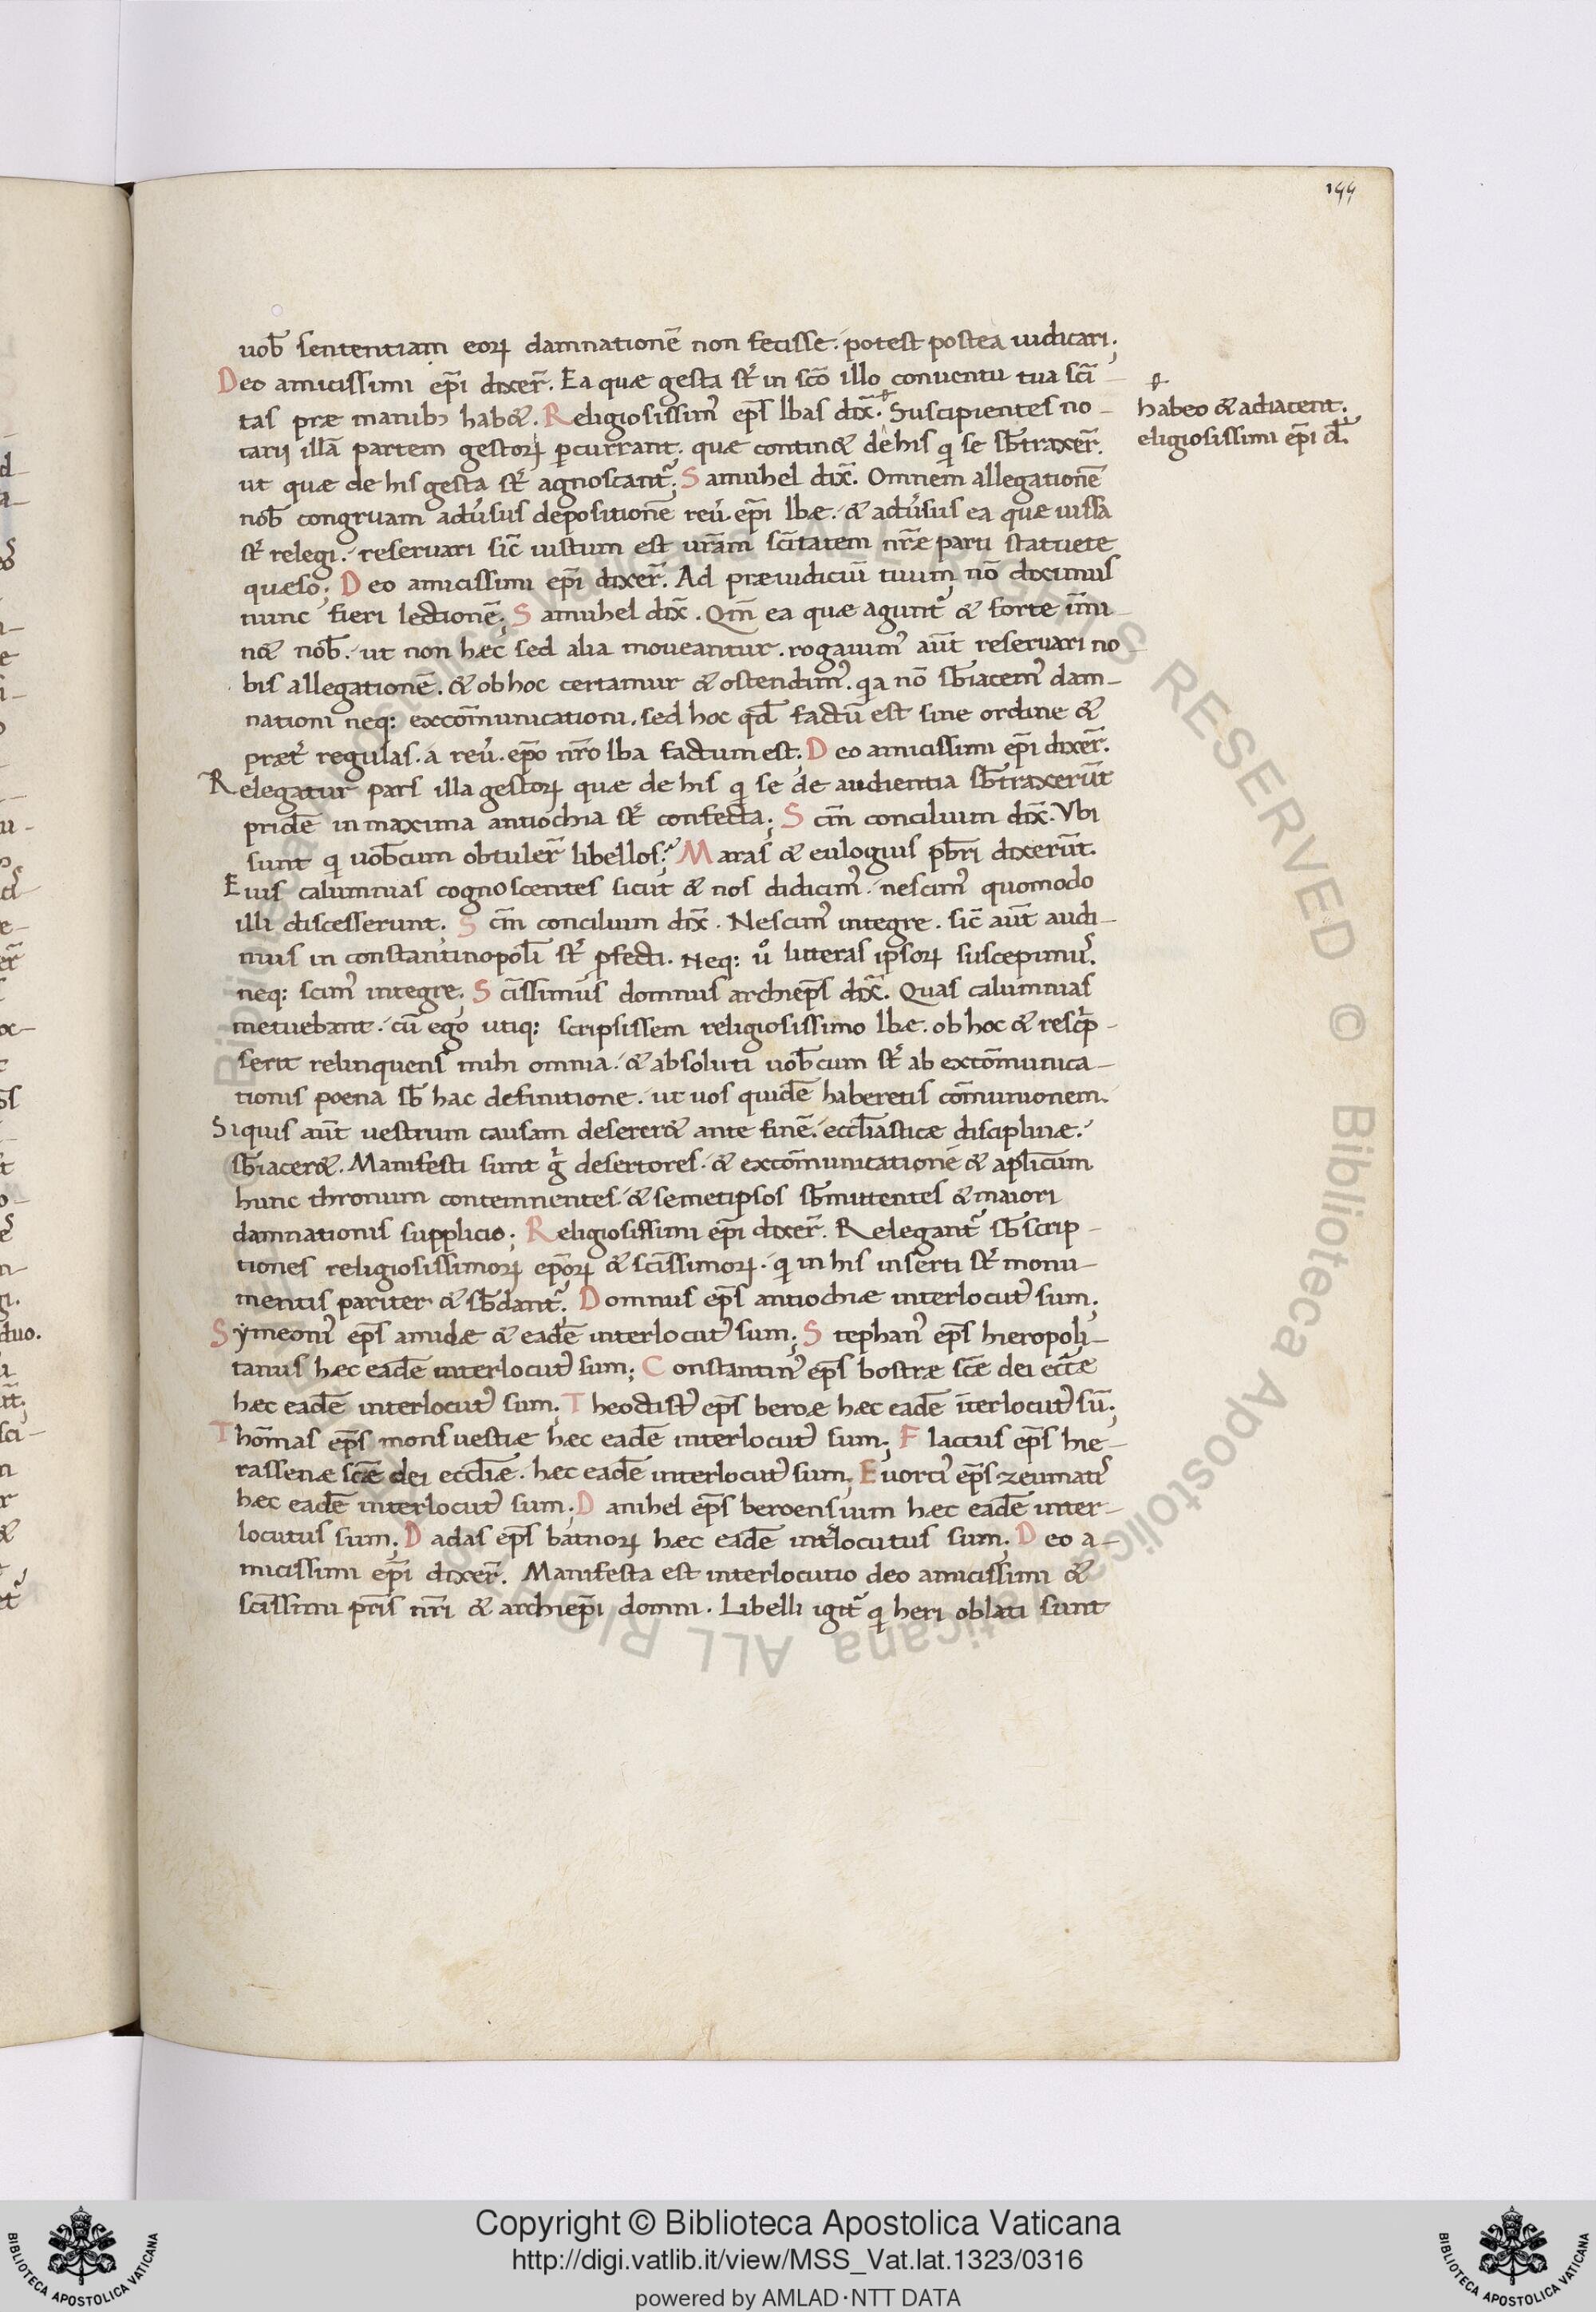 144
uob̄ sententiam eoꝝ damnationē non fecisse. potest postea iudicari;
Deo amicissimi ep̄i dixer̄. Ea quæ gesta st̄ in sc̄o illo conuentu tua sc̄i-
tas præ manib; hab&. Religiosissim᾿ ep̄s Ibas dix̄. Suscipientes no-
tarij illā partem gestoꝝ ꝑcurrant. quæ contin& de his q̇ se sb̄traxer̄.
ut quæ de his gesta st̄ agnoscant᷑; Samuhel dix̄. Omnem allegationē
nob̄ congruam aduersus depositionē reū. ep̄i Ibæ. & aduersus ea quæ iussa
st̄ relegi. reseruari sic̄ iustum est ur̄am sc̄itatem nr̄æ parti statuere
quæso; Deo amicissimi ep̄i dixer̄. Ad præiudiciū tuum nō dicimus
nunc fieri lectionē; Samuhel dix̄. Qm̄ ea quæ agunt᷑ & forte im̄i-
n& nob̄. ut non hæc sed alia moueantur. rogauim᾿ aut̄ reseruari no
bis allegationē. & ob hoc certamur & ostendim᾿. q̇a nō sb̄iacem᾿ dam-
nationi neq: excōmunicationi. sed hoc qd̄ factū est sine ordine &
præt᷑ regulas. a reū. ep̄o nr̄o Iba factum est; Deo amicissimi ep̄i dixer̄.
Relegatur pars illa gestoꝝ quæ de his q̇ se de audientia sb̄traxerūt
pridē in maxima antiochia st̄ confecta; Sc̄m concilium dix̄. Vbi
sunt q̇ uob̄cum obtuler̄ libellos? Maras & eulogius pb̄ri dixerūt.
Eius calumnias cognoscentes sicut & nos didicim᾿. nescim᾿ quomodo
illi discesserunt. Sc̄m concilium dix̄. Nescim᾿ integre. sic̄ aut̄ audi-
mus in constantinopoli st̄ ꝓfecti. Neq: u̇ litteras ipsoꝝ suscepimus.
neq: scim᾿ integre; Sc̄issimus domnus archiep̄s dix̄. Quas calumnias
metuebant. cū ego utiq: scripsissem religiosissimo Ibæ. ob hoc & rescp̄-
serit relinquens mihi omnia. & absoluti uob̄cum st̄ ab excōmunica-
tionis poena sb̄ hac definitione. ut uos quidē haberetis cōmunionem.
Siquis aut̄ uestrum causam deserer& ante finē. eccl̄iasticæ disciplinæ.
sb̄iacer&. Manifesti sunt g̊ desertores. & excōmunicationē & apl̄icum
hunc thronum contemnentes. & semetipsos sb̄mittentes & maiori
damnationis supplicio; Religiosissimi ep̄i dixer̄. Relegant᷑ sb̄scrip-
tiones religiosissimoꝝ ep̄oꝝ & sc̄issimoꝝ. q̇ in his inserti st̄ monu-
mentis pariter & sb̄dant᷑. Domnus ep̄s antiochiæ interlocut᾿ sum;
Symeoni᾿ ep̄s amidæ & eadē interlocut᾿ sum; Stephan᾿ ep̄s hieropoli-
tanus hæc eadē interlocut᾿ sum; Constantin᾿ ep̄s bostræ sc̄æ dei eccl̄æ
hæc eadē interlocut᾿ sum; Theoctist᾿ ep̄s beroæ hæc eadē īterlocut᾿ sū;
Thōmas ep̄s monsuestiæ hæc eadē interlocut᾿ sum; Flaccus ep̄s hie-
rassenæ sc̄æ dei eccl̄iæ. hæc eadē interlocut᾿ sum; Euorci᾿ ep̄s zeumati᾿
hæc eadē interlocut᾿ sum; Danihel ep̄s beroensium hæc eadē inter-
locutus sum; Dadas ep̄s batnoꝝ hæc eadē int᷑locutus sum; Deo a-
micissimi ep̄i dixer̄. Manifesta est interlocutio deo amicissimi &
sc̄issimi pr̄is nr̄i & archiep̄i domni. Libelli igit᷑ q̇ heri oblati sunt
habeo & adiacent.
eligiosissimi ep̄i d̄.
Copyright © Biblioteca Apostolica Vaticana
http://digi.vatlib.it/view/MSS_Vat.lat.1323/0316
powered by AMLAD·NTT DATA
BIBLIOTECA APOSTOLICA VATICANA
BIBLIOTECA APOSTOLICA VATICANA